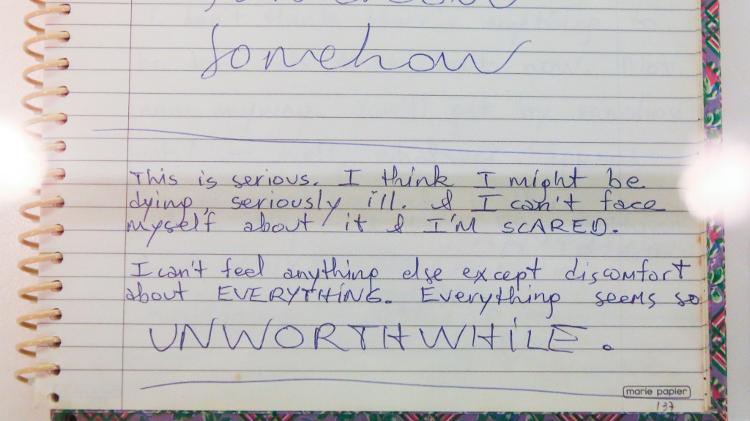 Somehow
This is serious. I think I might be
dying, seriously ill. & I can't face
myself about it & I'M SCARED.
I can't feel anything else except discomfort
about EVERYTHING. Everything seems so
UNWORTHWHILE.
marie papier
137